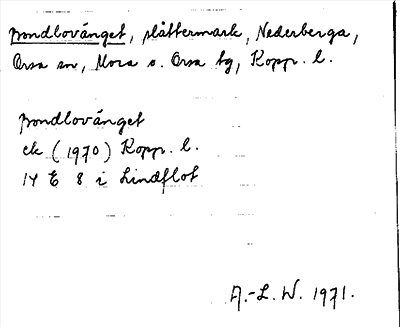 Trondlovänget, slåttermark, Nederberga,
Orsa sn, Mora o. Orsa tg, Kopp. l.
Trondlovänget
ek (1970) Kopp. l.
14 E 8 i Lindflot
A.-L. W. 1971.